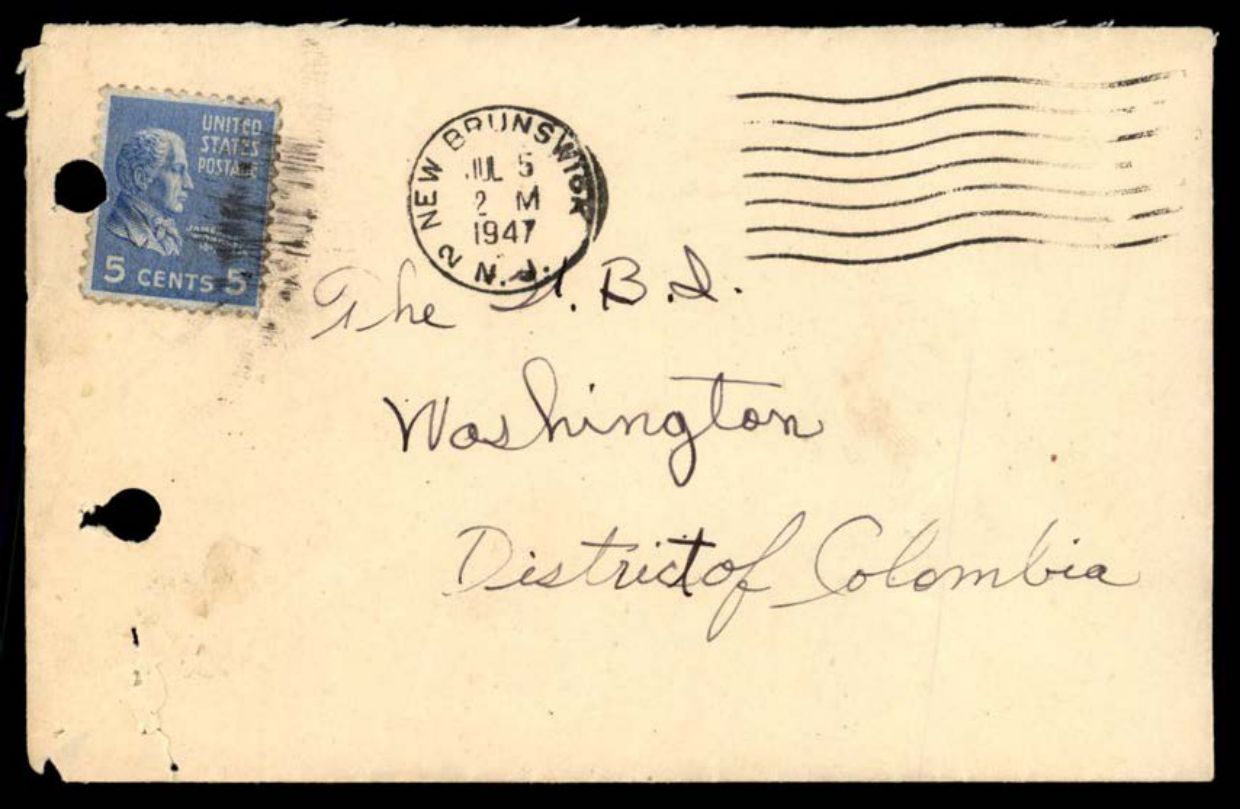 UNITED
STATES
POSTAGE
5 CENTS 5
NEW BRUNSWICK
JUL 5
2 M
1947
2 N.J.
The F.B.I.
Washington
District of Colombia